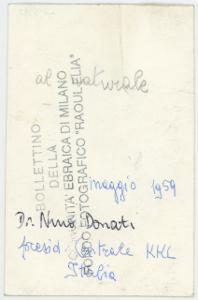 al naturale
BOLLETTINO
DELLA
COMUNITÀ EBRAICA DI MILANO
FONDO FOTOGRAFICO "RAOUL ELIA"
maggio 1959
Dr. Nino Donati
presid. Centrale KKL
Italia